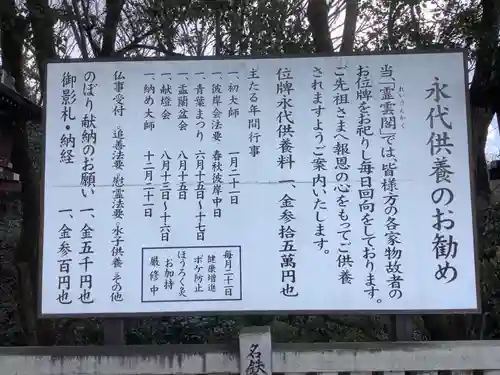 永代供養のお勧め
当、「霊雲閣」では、皆様方の各家物故者の
れいうんかく
お位牌をお祀りし毎日回向をしております。
ご先祖さまへ報恩の心をもってご供養
されますようご案内いたします。
位牌永代供養料 一、金参拾五萬円也
主たる年間行事
一、初大師 一月二十一日
一、彼岸会法要 春秋彼岸中日
一、青葉まつり 六月十五日~十七日
一、霊蘭盆会 八月十五日
一、献燈会 八月十三日~十六日
一、納め大師 十二月二十一日
毎月二十一日
健康増進
ボケ防止
ほうろく灸
お加持
厳修中
仏事受付 追善法要・慰霊法要・水子供養・その他
のぼり献納のお願い 一、金五千円也
御影札・納経 一、金参百円也
名鉄